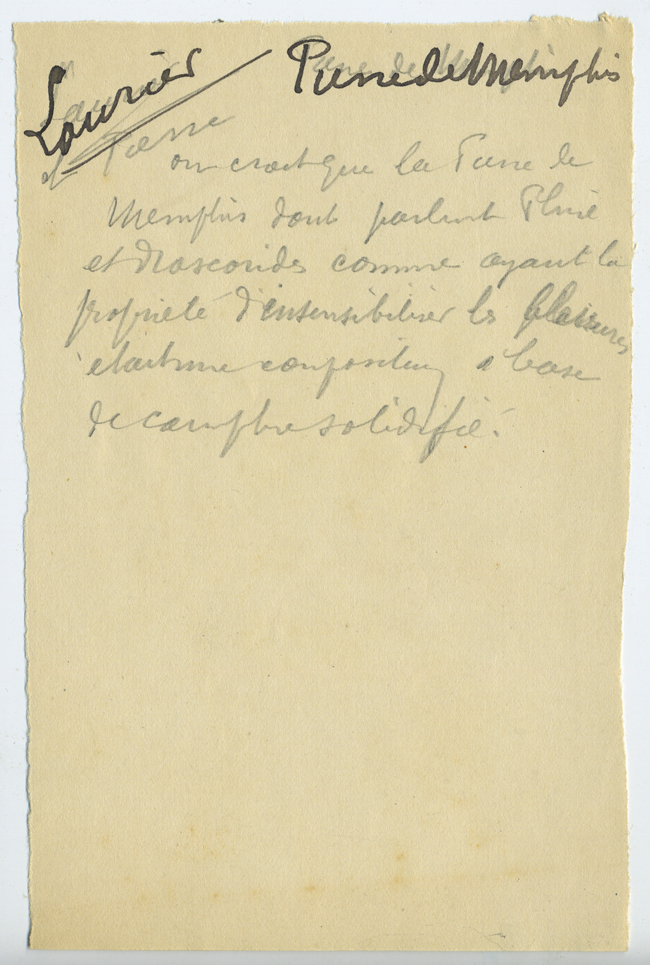 Laurier Pierre de Memphis
Pierre
on croit que la Pierre de
Memphis dont parlent Pline
et Dioscorides comme ayant la
propriété d'insensibiliser les blessures
était une composition à base
de camphre solidifié.